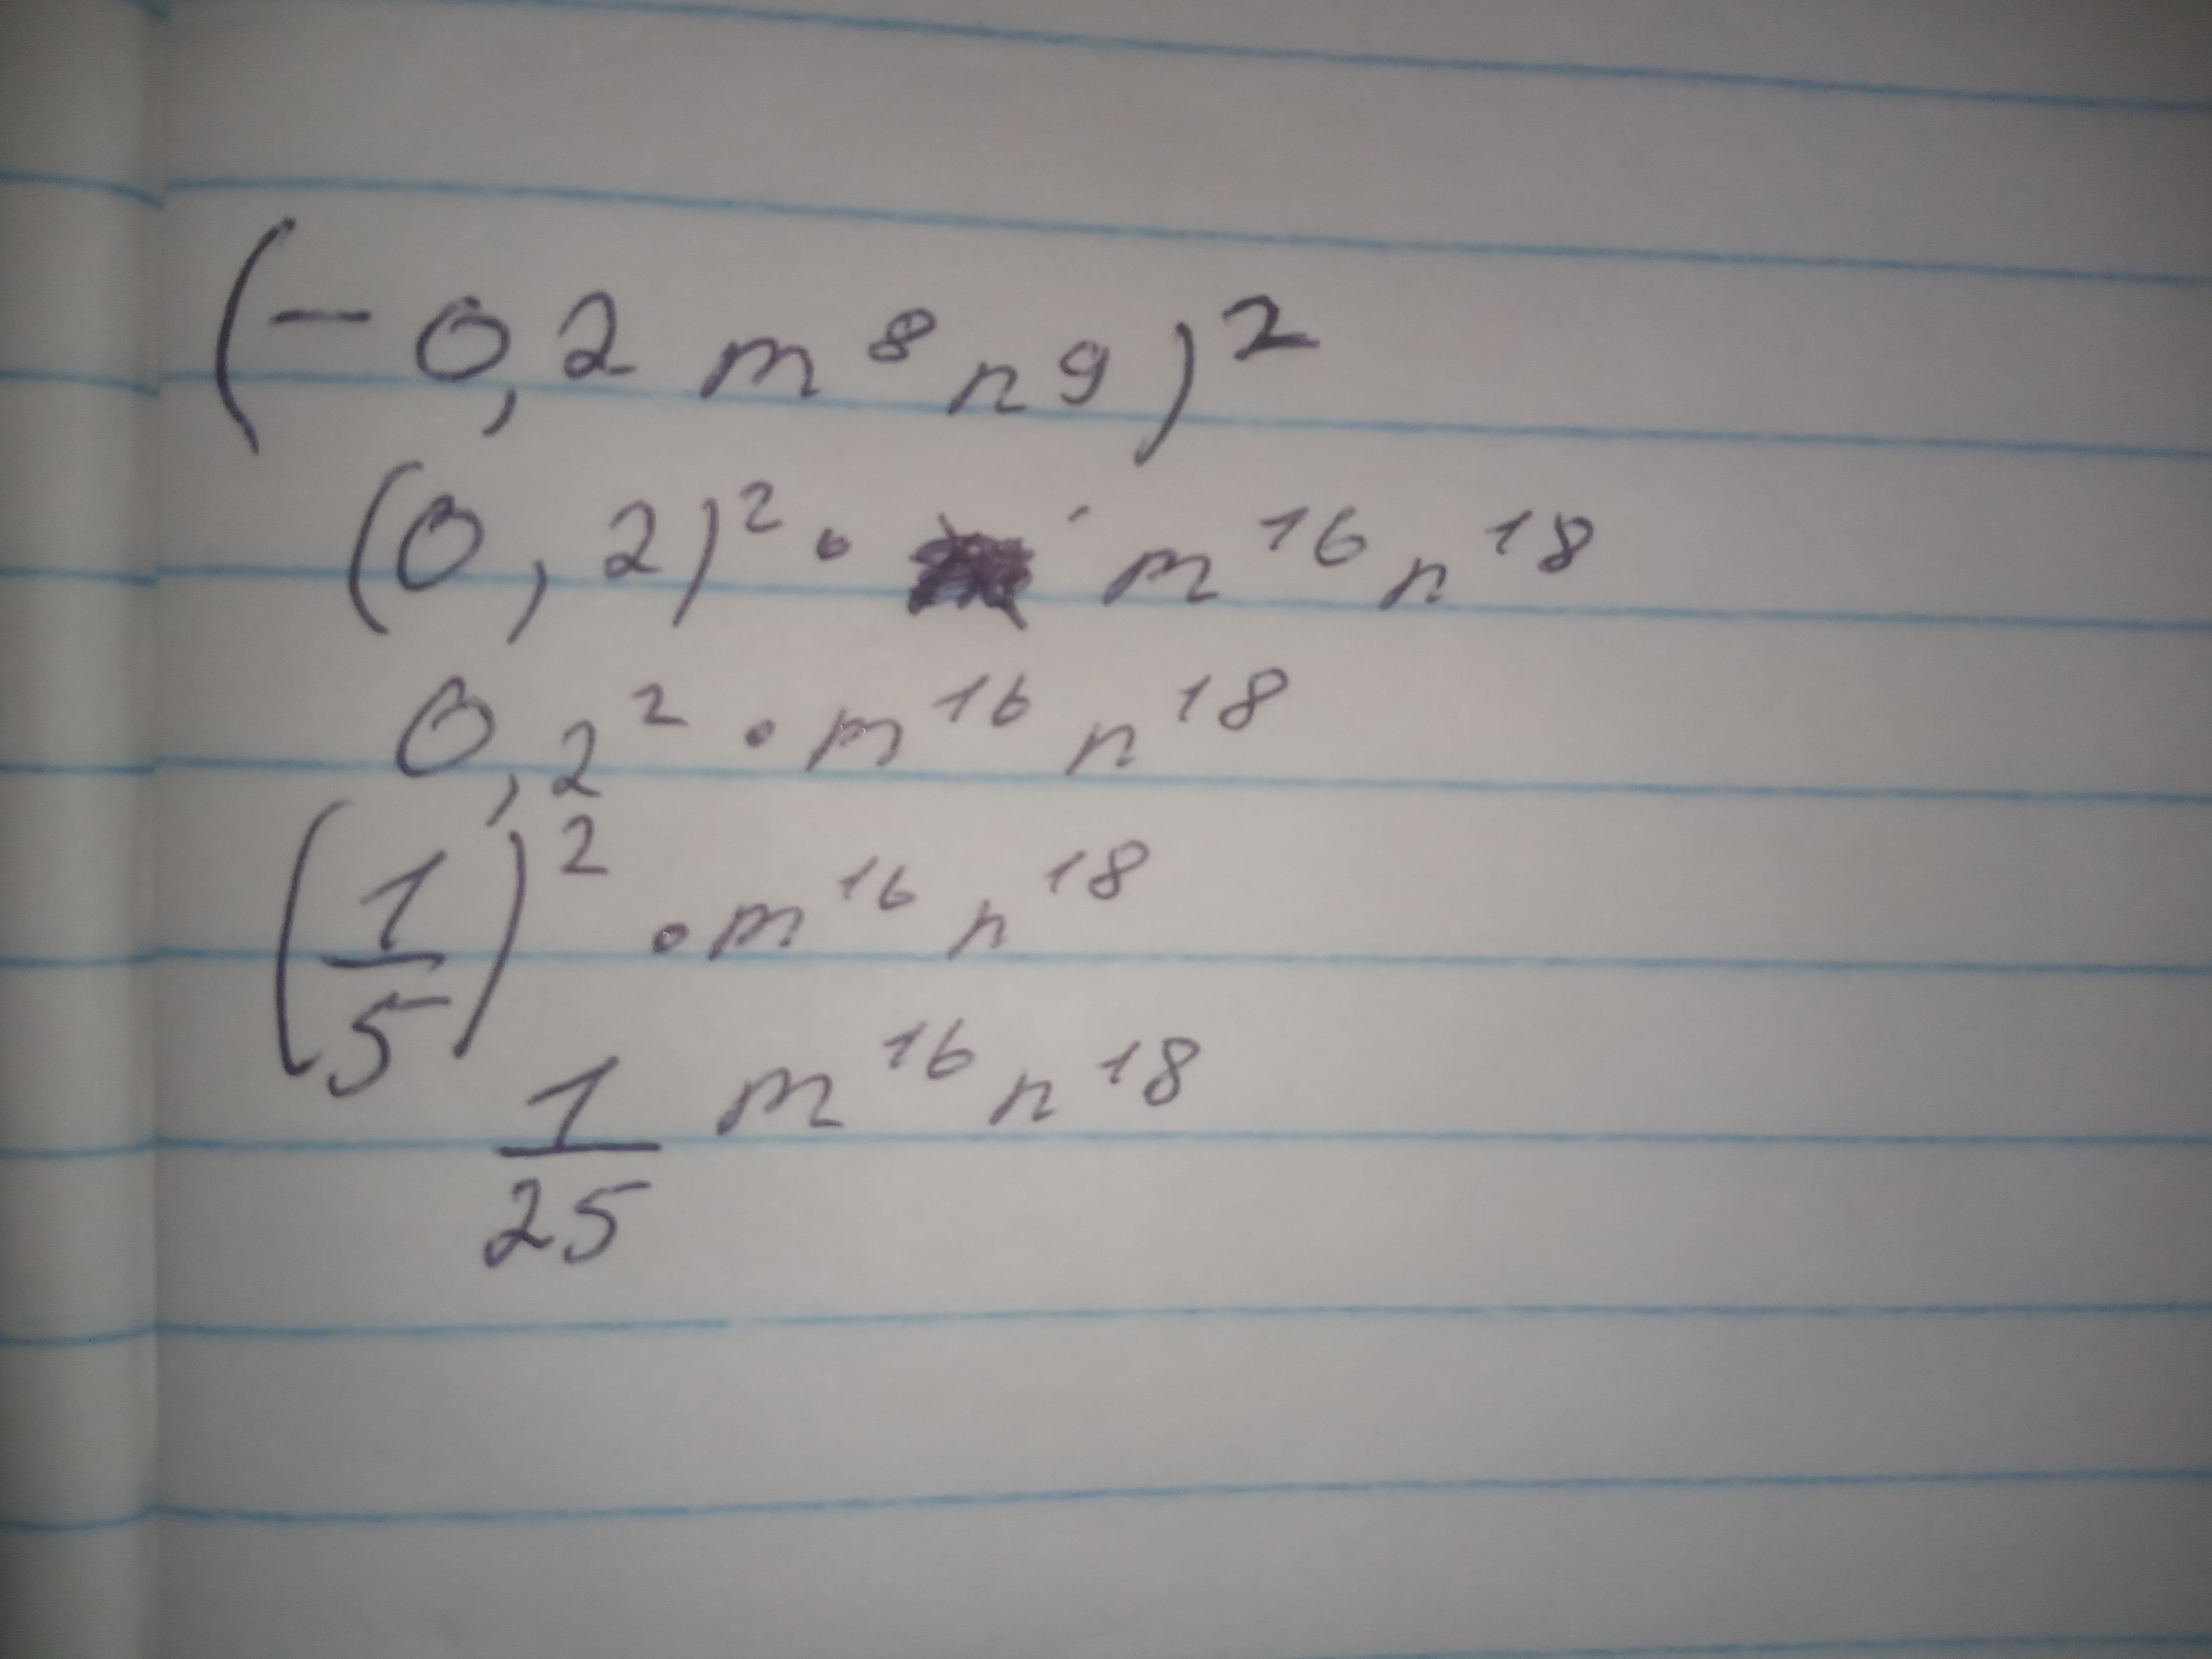 (-0,2 m⁸ n⁹)²
(0,2)² · m¹⁶ n¹⁸
0,2² · m¹⁶ n¹⁸
(1/5)² · m¹⁶ n¹⁸
1/25 m¹⁶ n¹⁸